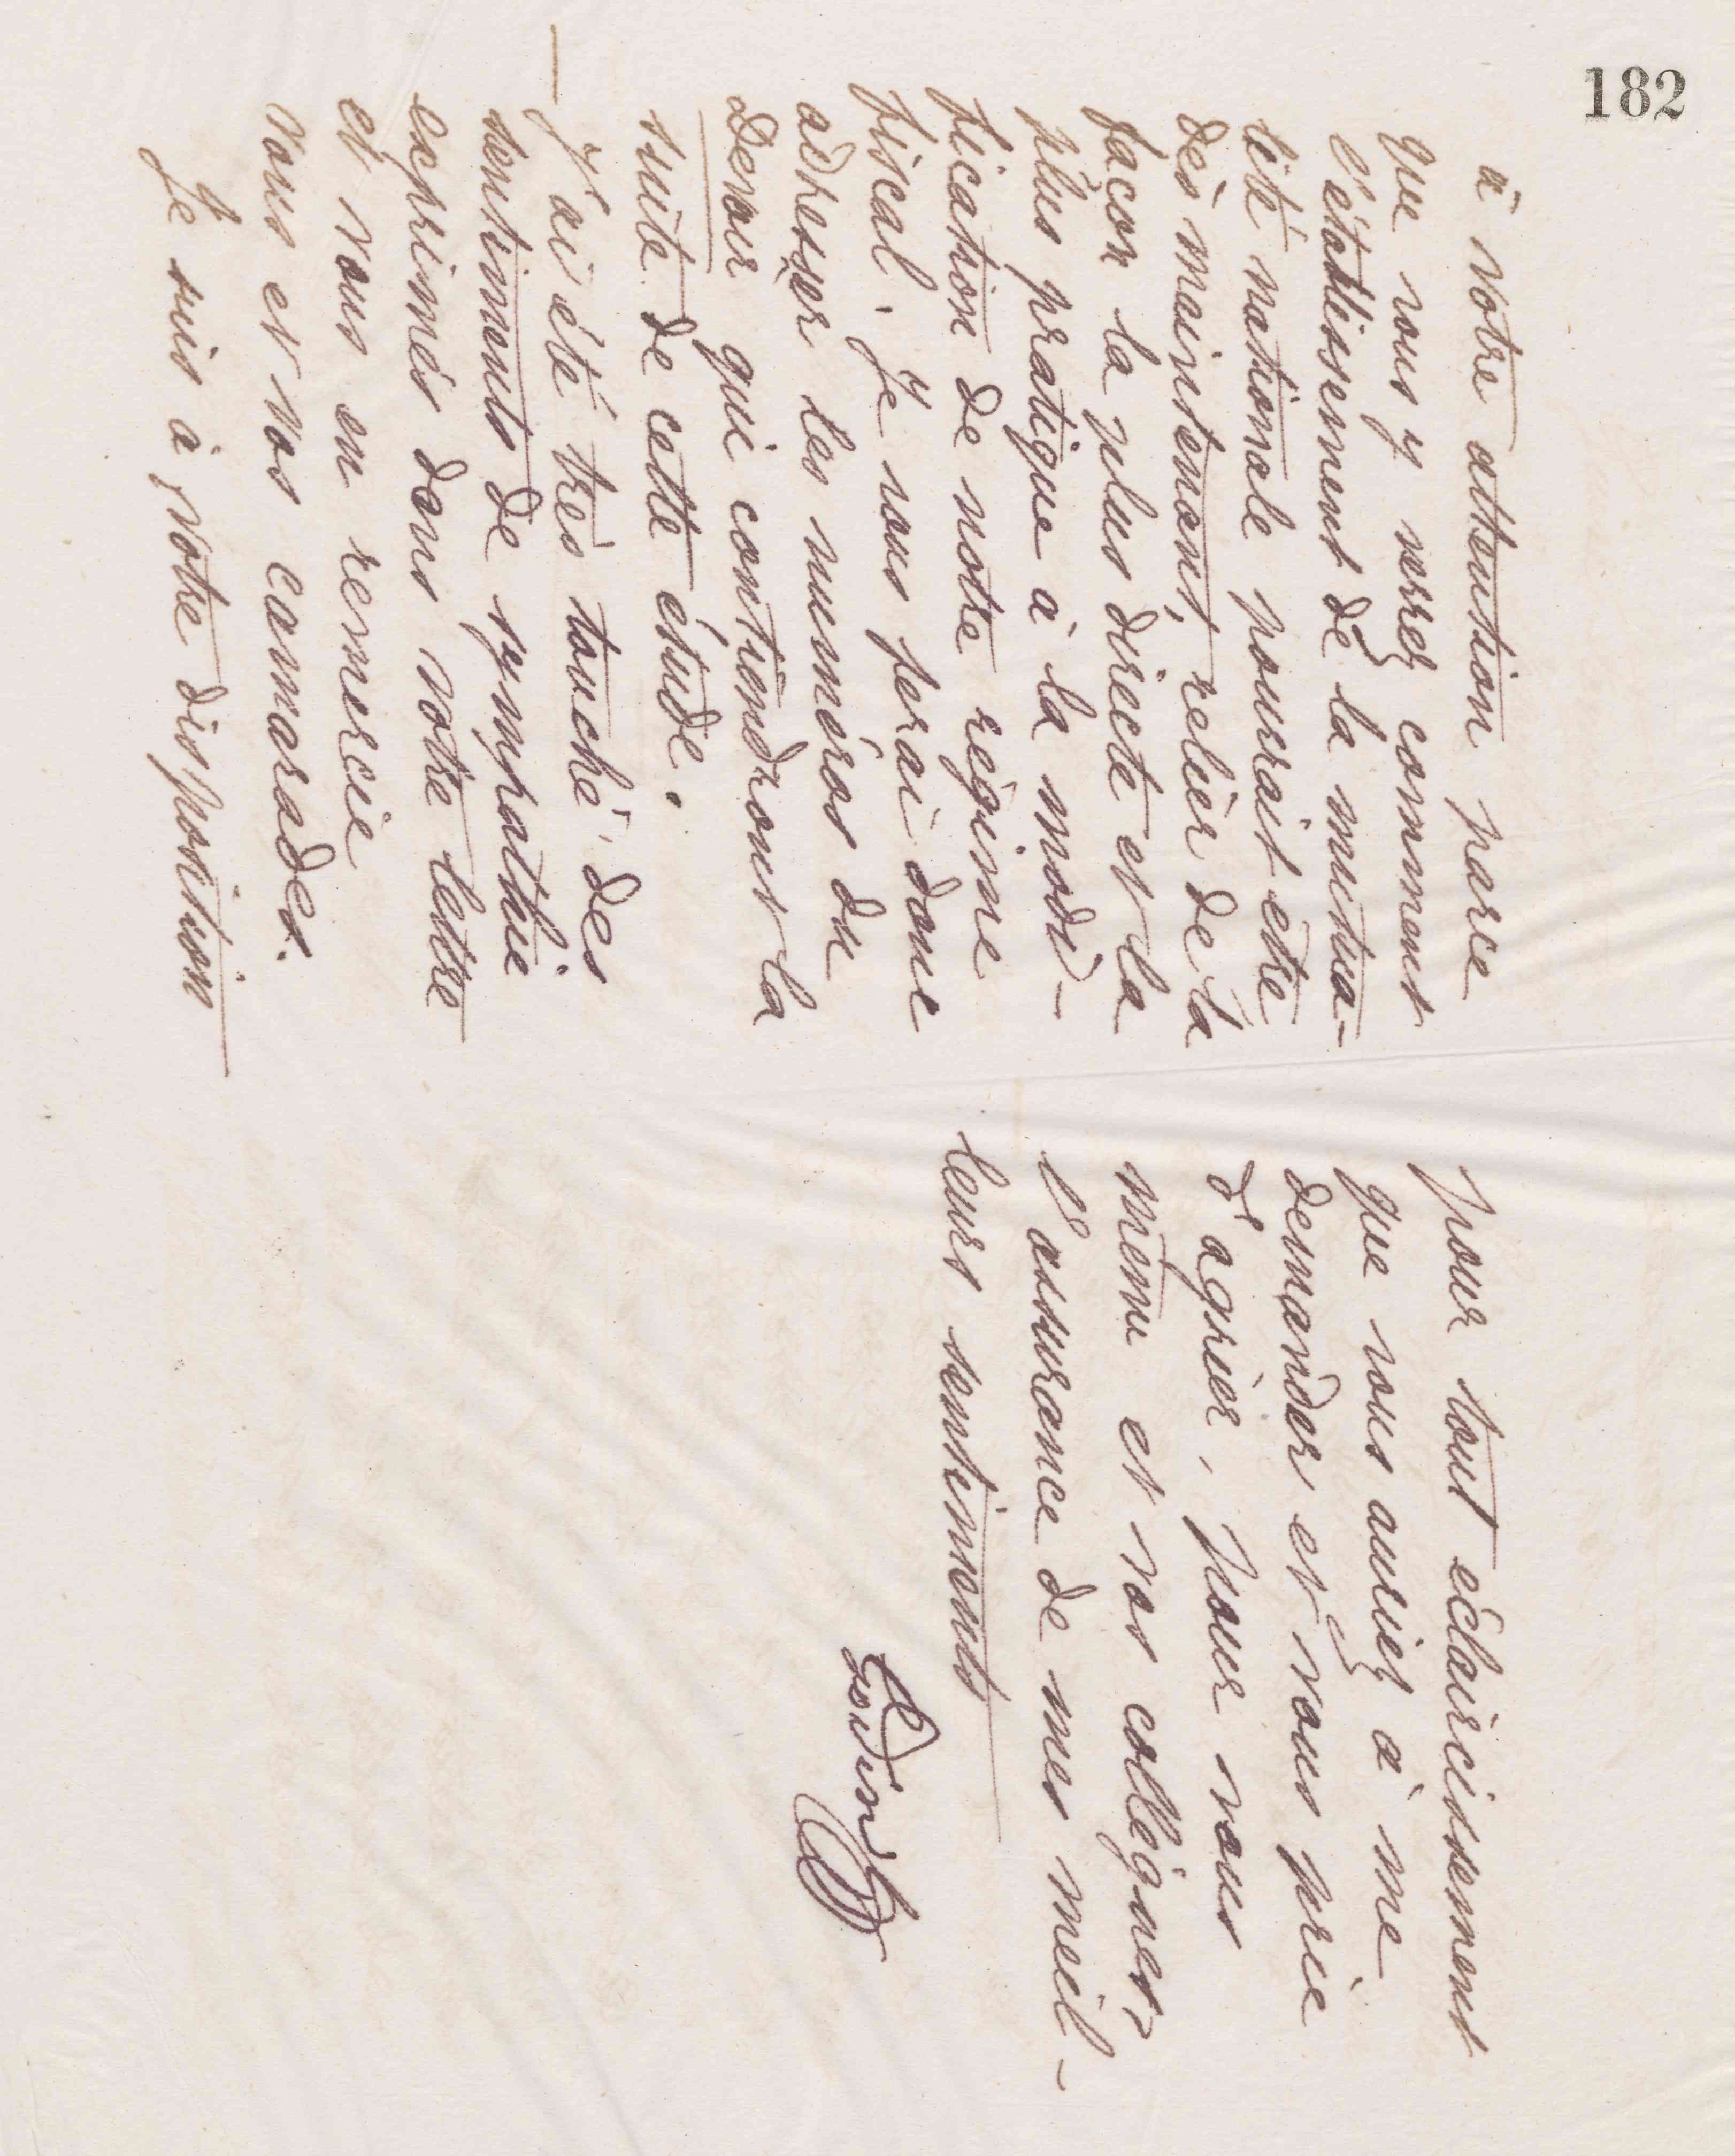 182
à votre attention parce
que vous y verrez comment
l'établissement de la mutua-
lité nationale pourrait être
dès maintenant, relier de la
façon la plus directe et la
plus pratique à la modi-
fication de notre régime
fiscal. Je vous ferai donc
adresser les numéros du
Devoir qui contiendront la
suite de cette étude.
— J'ai été très touché des
sentiments de sympathie
exprimés dans votre lettre
et vous en remercie
vous et vos camarades.
Je suis à votre disposition
pour tout éclaircissement
que vous auriez à me
demander et vous prie
d'agréer, pour vous
même et vos collègues,
l'assurance de mes meil-
leurs sentiments
Godin